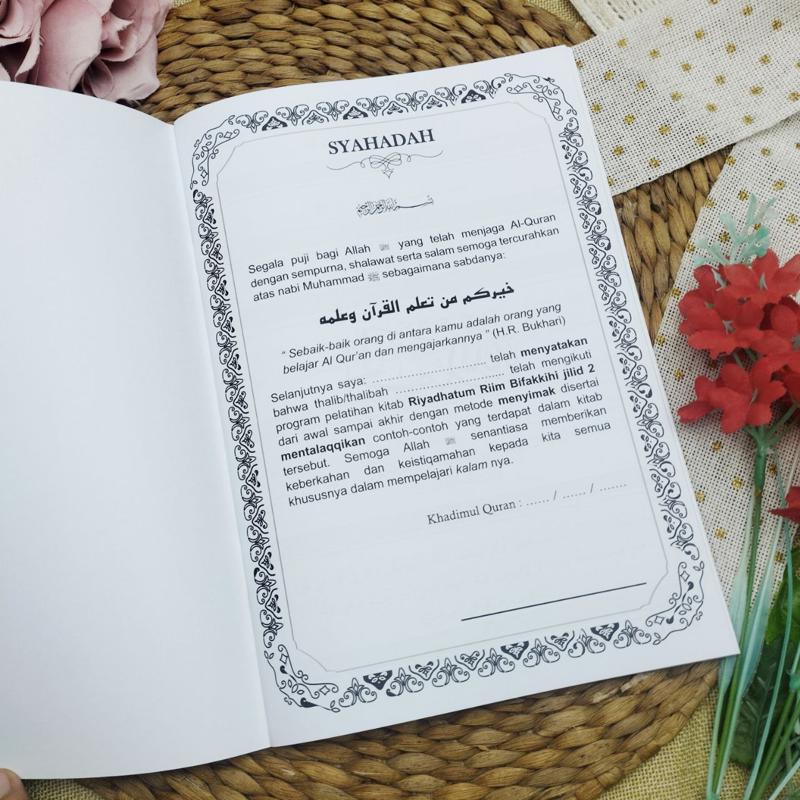 SYAHADAH
Segala puji bagi Allah ﷻ yang telah menjaga Al-Quran
dengan sempurna, shalawat serta salam semoga tercurahkan
atas nabi Muhammad ﷺ sebagaimana sabdanya:
خيركم من تعلم القرآن وعلمه
“ Sebaik-baik orang di antara kamu adalah orang yang
belajar Al Qur’an dan mengajarkannya ” (H.R. Bukhari)
Selanjutnya saya: ............................. telah menyatakan
bahwa thalib/thalibah ............................. telah mengikuti
program pelatihan kitab Riyadhatum Riim Bifakkihi jilid 2
dari awal sampai akhir dengan metode menyimak disertai
mentalaqqikan contoh-contoh yang terdapat dalam kitab
tersebut. Semoga Allah ﷻ senantiasa memberikan
keberkahan dan keistiqamahan kepada kita semua
khususnya dalam mempelajari kalam nya.
Khadimul Quran : ...... / ...... / .......